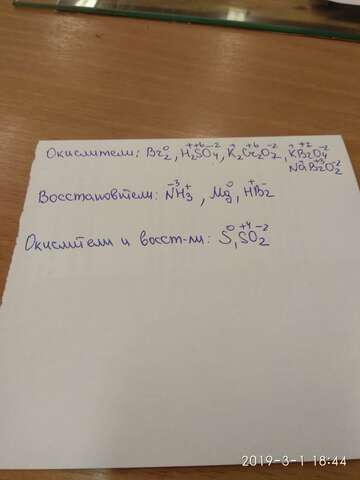 Окислители: Br₂⁰, H₂⁺S⁺⁶O₄⁻², K₂⁺Cr₂⁺⁶O₂⁻², K⁺Br⁺⁷O₄⁻²
NaBr⁺³O₂⁻²
Восстановители: N⁻³H₃⁺, Mg⁰, H⁺Br⁻
Окислители и восст-ли: S⁰, S⁺⁴O₂⁻²
2019-3-1 18:44